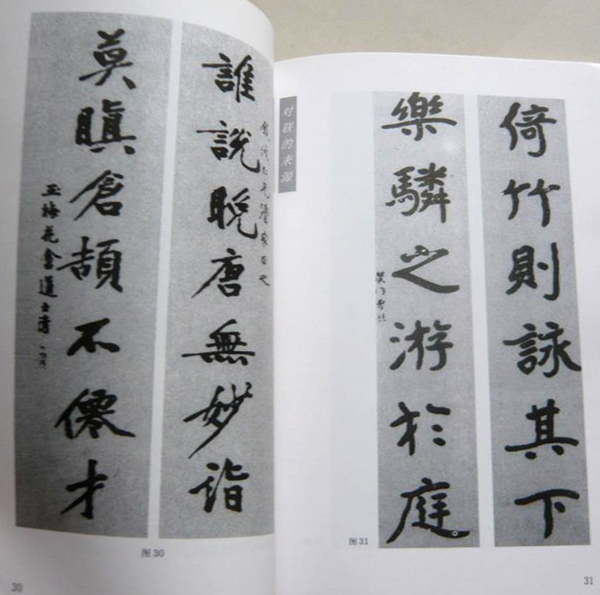 誰說晚唐無妙詣
莫瞋倉頡不僊才
玉梅花盦道士清
图30
30
对联的来源
倚竹則詠其下
樂驎之游於庭
图31
31